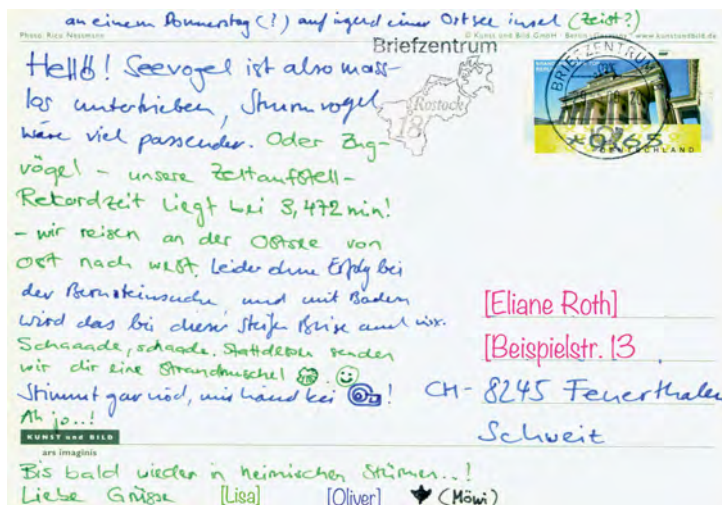 an einem Donnerstag (!) auf irgend einer Ostseeinsel (Zeist?)
Photo: Rico Nessmann
© Kunst und Bild GmbH · Berlin/Germany · www.kunstundbild.de
Hellö! Seevogel ist also mass-
los untertrieben, Sturmvogel
wäre viel passender. Oder Zug-
vögel – unsere Zeltaufstell-
Rekordzeit liegt bei 3,472 min!
– wir reisen an der Ostsee von
Ost nach West. Leider ohne Erfolg bei
der Bernsteinsuche und mit Baden
wird das bei dieser steifen Brise auch nix.
Schaaade, schaade. Stattdessen senden
wir dir eine Strandmuschel
Stimmt gar nöd, mir händ kei !
Ah jo..!
KUNST und BILD
ars imaginis
Bis bald wieder in heimischen Stürmen..!
Liebe Grüsse [Lisa] [Oliver] (Möwi)
Briefzentrum
Rostock
18
BRIEFZENTRUM
18
*0,65
DEUTSCHLAND
[Eliane Roth]
[Beispielstr. 13
CH- 8245 Feuerthalen
Schweit